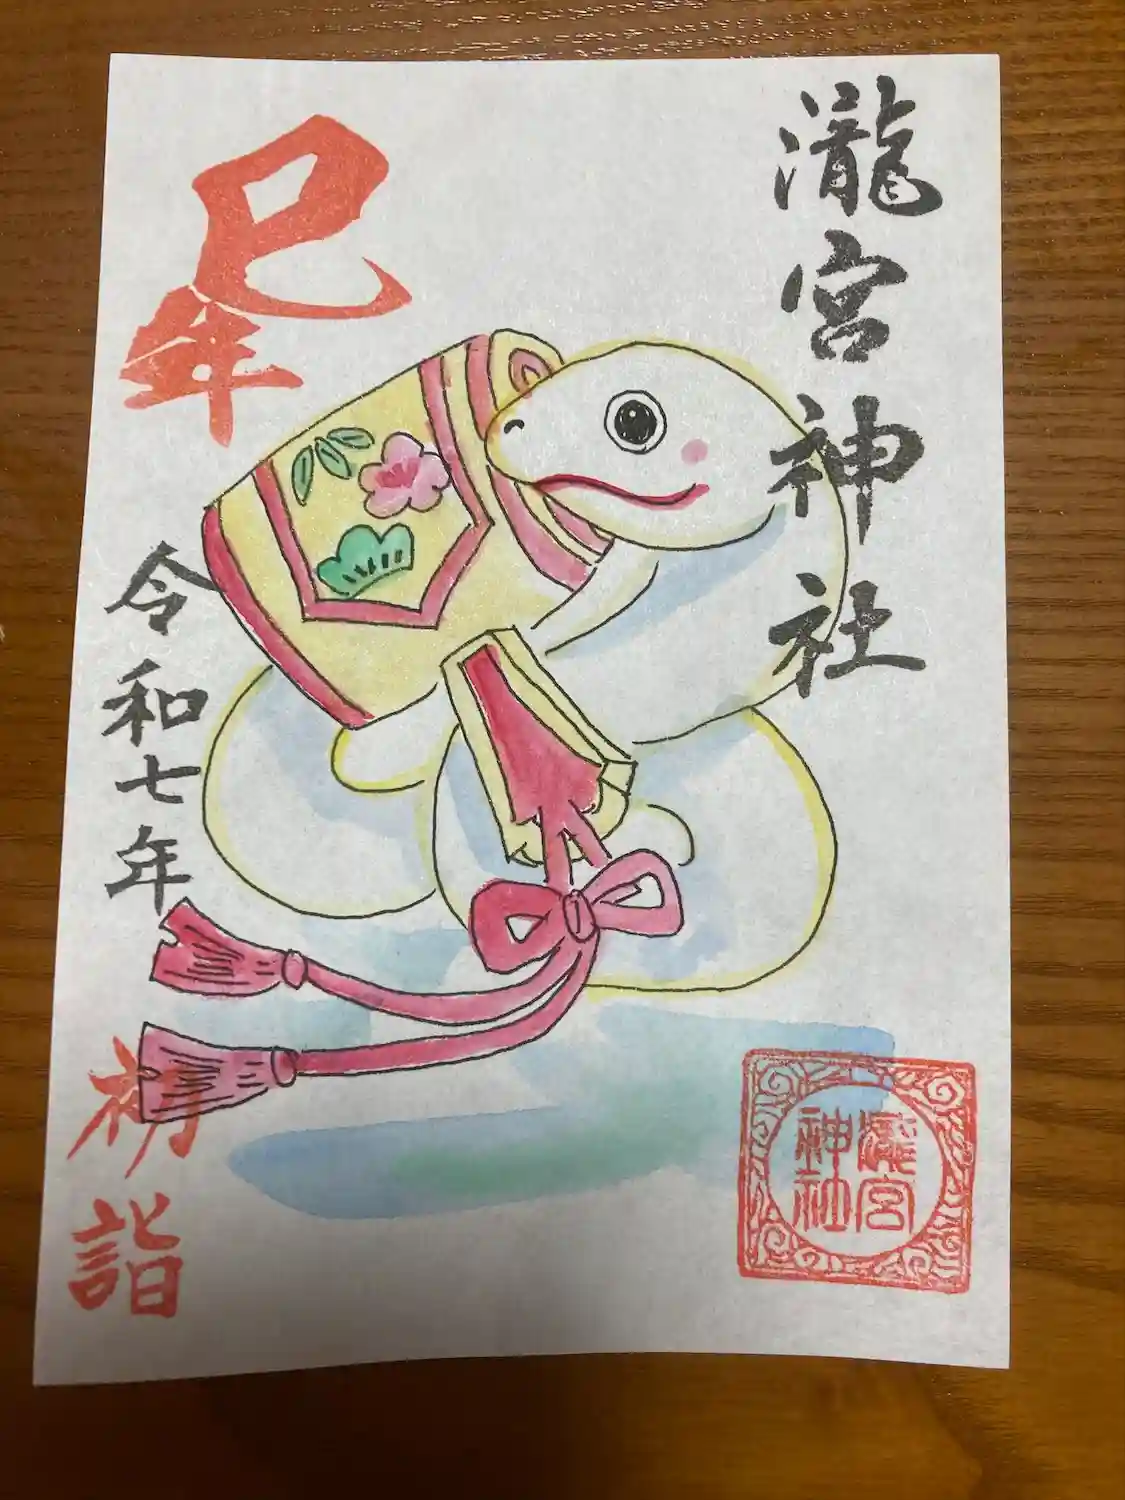 瀧宮神社
巳年
令和七年
初詣
瀧宮
神社